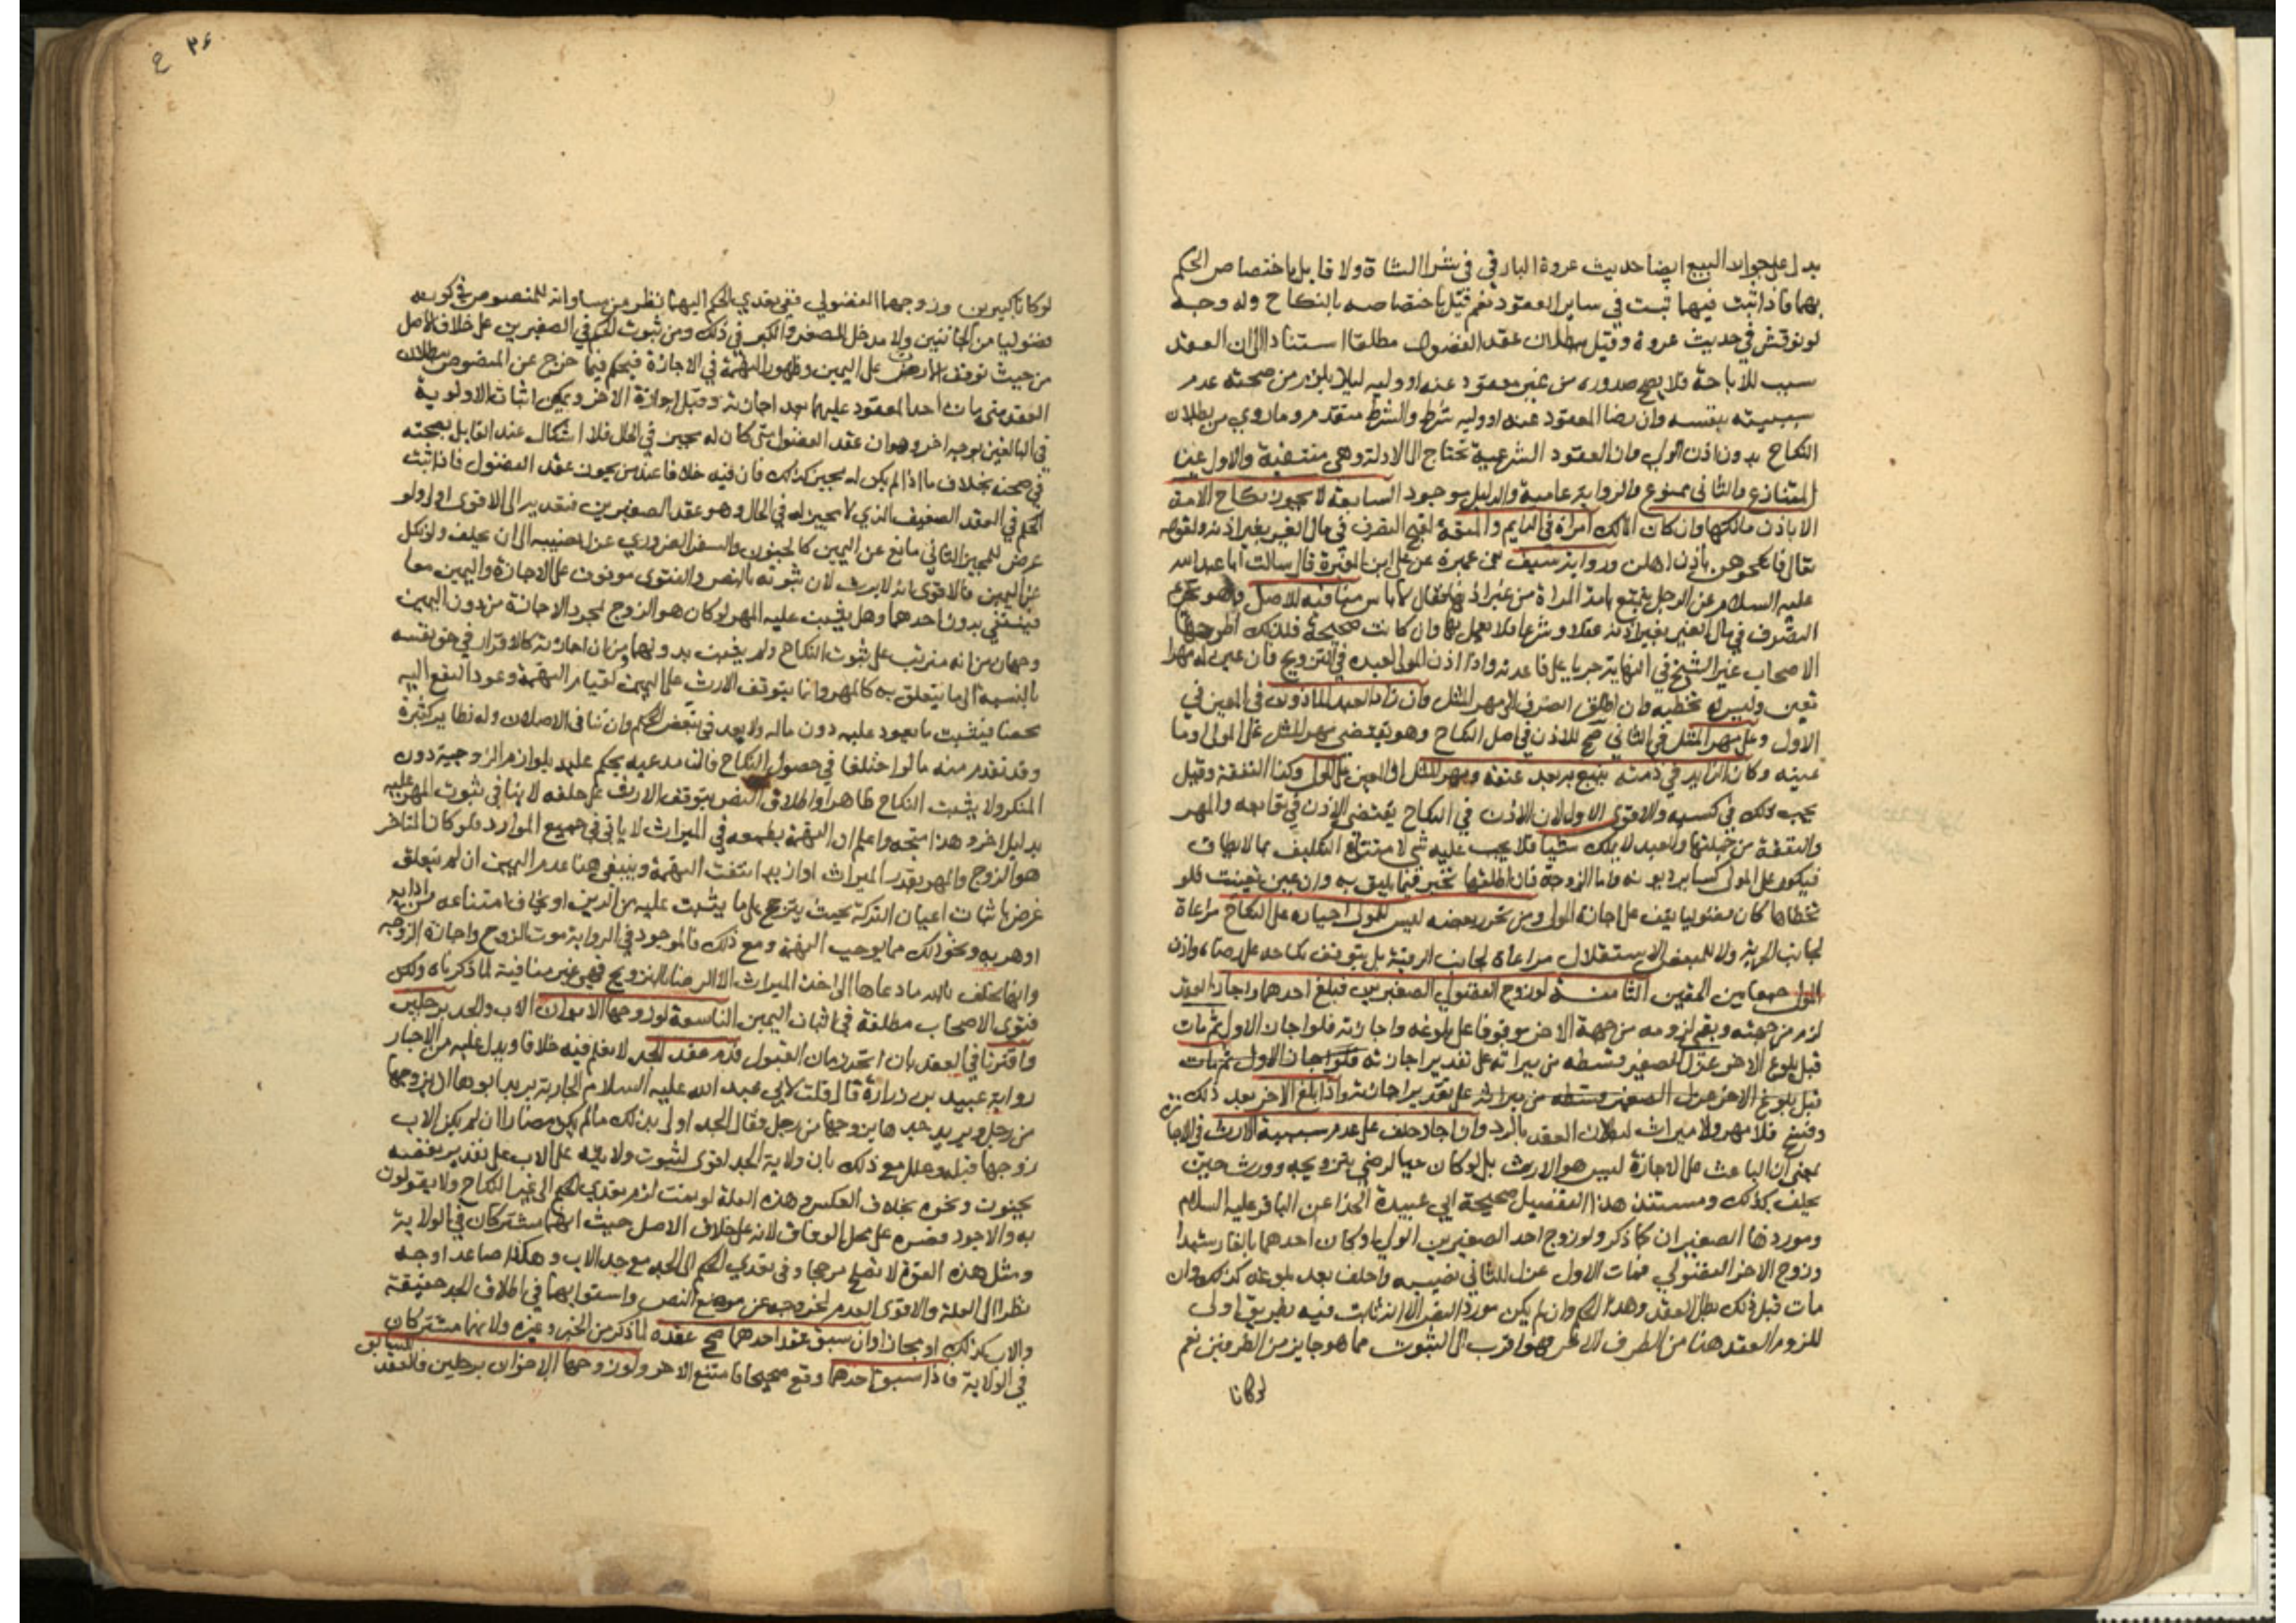 يدل على جواز البيع ايضا حديث عروة البارقي في شرا الشاة ولا قايل باختصاص الحكم
بهما فاذا ثبت فيهما ثبت في ساير العقود نعم قيل باختصاصه بالنكاح وله وجه
لو نوقش في حديث عروة وقيل ببطلان عقد الفضول مطلقا استنادا الى ان العقد
سبب للاباحة فلا يصح صدوره من غير معقود عنه او وليه ليلا يلزم من صحته عدم
سببيته بنفسه وان رضا المعقود عنه او وليه شرط والشرط متقدم وما روي من بطلان
النكاح بدون اذن الولي وان العقود الشرعية تحتاج الى الادلة وهي منتفية والاول عين
المتنازع والثاني ممنوع والرواية عامية والدليل موجود السابعة لا يجوز نكاح الامة
الا باذن مالكها وان كان المالك امراة في الدايم والمتعة لقبح التصرف في مال الغير بغير اذنه ولقوله
تعالى فانكحوهن باذن اهلهن ورواية سيف بن عميرة عن علي بن المغيرة قال سالت ابا عبد الله
عليه السلام عن الرجل يتمتع بامة المراة من غير اذنها فقال لا باس منافية للاصل وهو تحريم
التصرف في مال الغير بغير اذنه عقلا وشرعا فلا يعمل بها وان كانت صحيحة فلذلك اطرحها
الاصحاب غير الشيخ في النهاية جريا على قاعدته واذا اذن المولى لعبده في التزويج فان عين له مهرا
تعين وليس له تخطيه وان اطلق انصرف الى مهر المثل وان زاد العبد الماذون في المعين في
الاول وعلى مهر المثل في الثاني صح للاذن في اصل النكاح وهو يقتضي مهر المثل على المولى او ما
عينه وكان الزايد في ذمته يتبع به بعد عتقه ومهر المثل او المعين على المولى وكذا النفقة وقيل
يجب ذلك في كسبه والاقوى الاول لان الاذن في النكاح يقتضي الاذن في توابعه والمهر
والنفقة من جملتها والعبد لا يملك شيا فلا يجب عليه شي لامتناع التكليف بما لا يطاق
فيكون على المولى كساير ديونه واما الزوجة فان اطلقها تخير فيما يليق به وان عين تعينت فلو
تخطاها كان فضوليا يقف على اجازة المولى ومن تحرر بعضه ليس للمولى اجباره على النكاح مراعاة
لجانب الحرية ولا للمبعض الاستقلال مراعاة لجانب الرقية بل يتوقف نكاحه على رضاه واذن
المولى جمعا بين الحقين الثامنة لو زوج الفضولي الصغيرين فبلغ احدهما واجاز العقد
لزم من جهته وبقي لزومه من جهة الاخر موقوفا على بلوغه واجازته فلو اجاز الاول ثم مات
قبل بلوغ الاخر عزل للصغير قسطه من ميراثه على تقدير اجازته فلو اجاز الاول ثم مات
قبل بلوغ الاخر عزل الصغير قسطه من ميراثه على تقدير اجازته واذا بلغ الاخر بعد ذلك
وفسخ فلا مهر ولا ميراث لبطلان العقد بالرد وان اجاز حلف على عدم سببية الارث في الاجا
بمعنى ان الباعث على الاجازة ليس هو الارث بل لو كان حيا لرضي بتزويجه وورث حين
يحلف كذلك ومستند هذا التفصيل صحيحة ابي عبيدة الحذا عن الباقر عليه السلام
وموردها الصغيران كما ذكر ولو زوج احد الصغيرين الولي او كان احدهما بالغا رشيدا
وزوج الاخر الفضولي فمات الاول عزل للثاني نصيبه واحلف بعد بلوغه كذلك وان
مات قبل ذلك بطل العقد وهذا الحكم وان لم يكن مورد النص الا انه ثابت فيه بطريق اولى
للزوم العقد هنا من الطرف الاخر فهو اقرب الى الثبوت مما هو جايز من الطرفين نعم
لو كانا
٣٤
لو كانا كبيرين وزوجهما الفضولي ففي تعدي الحكم اليهما نظر من مساواته للمنصوص في كونه
فضوليا من الجانبين ولا مدخل للصغر والكبر في ذلك ومن ثبوت الحكم في الصغيرين على خلاف الاصل
من حيث توقف الارث على اليمين وظهور التهمة في الاجازة فيحكم فيما خرج عن المنصوص ببطلان
العقد متى مات احد المعقود عليهما بعد اجازته وقبل اجازة الاخر ويمكن اثبات الاولوية
في البالغين بوجه اخر وهو ان عقد الفضول متى كان له مجيز في الحال فلا اشكال عند القايل بصحته
في صحته بخلاف ما اذا لم يكن له مجيز كذلك فان فيه خلافا عند من يجوز عقد الفضول فاذا ثبت
الحكم في العقد الضعيف الذي لا مجيز له في الحال وهو عقد الصغيرين فتعديه الى الاقوى اولى ولو
عرض للمجيز الثاني مانع عن اليمين كالجنون والسفر الضروري عزل نصيبه الى ان يحلف ولو نكل
عن اليمين فالاقوى انه لا يرث لان ثبوته بالنص والفتوى موقوف على الاجازة واليمين معا
فينتفي بدون احدهما وهل يثبت عليه المهر لو كان هو الزوج لمجرد الاجازة من دون اليمين
وجهان من انه مترتب على ثبوت النكاح ولم يثبت بدونهما ومن ان اجازته كالاقرار في حق نفسه
بالنسبة الى ما يتعلق به كالمهر وانما يتوقف الارث على اليمين لقيام التهمة وعود النفع اليه
محضا فيثبت ما يعود عليه دون ماله ولا بعد في تبعض الحكم وان تنافى الاصلان وله نظاير كثيرة
وقد تقدم منه ما لو اختلفا في حصول النكاح فان مدعيه يحكم عليه بلوازم الزوجية دون
المنكر ولا يثبت النكاح ظاهرا واطلاق النص بتوقف الارث على حلفه لا ينافي ثبوت المهر عليه
بدليل اخر وهذا متجه واعلم ان التهمة بطمعه في الميراث لا ياتي في جميع الموارد فلو كان المتاخر
هو الزوج والمهر بقدر الميراث او ازيد انتفت التهمة وينبغي هنا عدم اليمين ان لم يتعلق
غرض باثبات اعيان التركة بحيث يترجح على ما يثبت عليه من الدين او يخاف امتناعه من ادايه
او هربه ونحو ذلك مما يوجب التهمة ومع ذلك فالموجود في الرواية موت الزوج واجازة الزوجة
وانها تحلف بالله ما دعاها الى اخذ الميراث الا الرضا بالتزويج فهي غير منافية لما ذكرناه ولكن
فتوى الاصحاب مطلقة في اثبات اليمين التاسعة لو زوجها الابوان الاب والجد برجلين
واقترنا في العقد بان اتحد زمان القبول قدم عقد الجد لا نعلم فيه خلافا ويدل عليه من الاخبار
رواية عبيد بن زرارة قال قلت لابي عبد الله عليه السلام الجارية يريد ابوها ان يزوجها
من رجل ويريد جدها ان يزوجها من رجل فقال الجد اولى بذلك ما لم يكن مضارا ان لم يكن الاب
زوجها قبله وعلل مع ذلك بان ولاية الجد اقوى لثبوت ولايته على الاب على تقدير نقصه
بجنون ونحوه بخلاف العكس وهذه العلة لو تمت لزم تعدي الحكم الى غير النكاح ولا يقولون
به والاجود قصره على محل الوفاق لانه على خلاف الاصل حيث انهما مشتركان في الولاية
ومثل هذه القوة لا تصلح مرجحا وفي تعدي الحكم الى الجد مع جد الاب وهكذا صاعدا وجه
نظرا الى العلة والاقوى العدم لخروجه عن موضع النص واستوايهما في اطلاق الجد حقيقة
والاب كذلك او مجازا وان سبق عقد احدهما صح عقده لما ذكر من الخبر وغيره ولانهما مشتركان
في الولاية فاذا سبق احدهما وقع صحيحا فامتنع الاخر ولو زوجها الاخوان برجلين فالعقد
للسابق